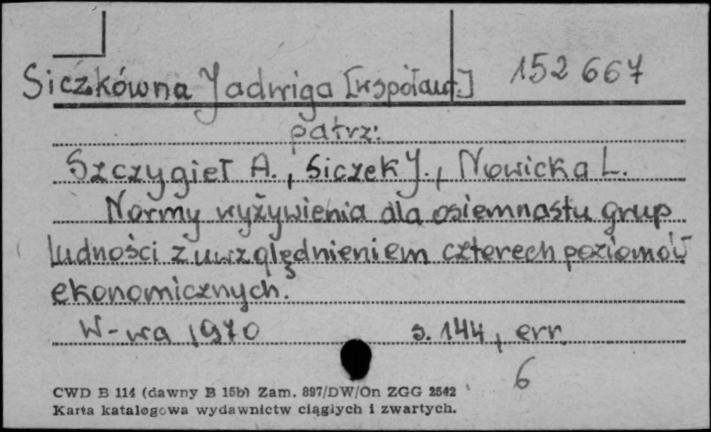 Siczkówna Jadwiga [współaut.] 152 667
patrz:
Szczygieł A., Siczek J., Nowicka L.
Normy wyżywienia dla osiemnastu grup
ludności z uwzględnieniem czterech poziomów
ekonomicznych.
W-wa 1970 s. 144, err.
6
CWD B 114 (dawny B 15b) Zam. 897/DW/On ZGG 2542
Karta katalogowa wydawnictw ciągłych i zwartych.